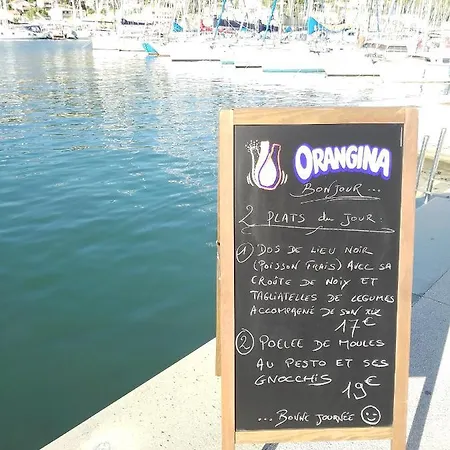 ORANGINA
BONJOUR...
2 PLATS du JOUR:
1 DOS DE LIEU NOIR
(POISSON FRAIS) AVEC SA
CROÛTE DE NOIX ET
TAGLIATELLES DE LEGUMES
ACCOMPAGNÉ DE SON RIZ
17€
2 POELEE DE MOULES
AU PESTO ET SES
GNOCCHIS
19€
... BONNE JOURNÉE